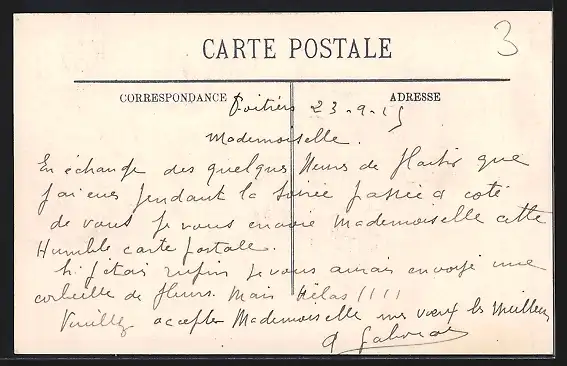 3
CARTE POSTALE
CORRESPONDANCE
ADRESSE
Poitiers 23-9-15
Mademoiselle.
En échange des quelques heures de plaisir que
j'ai eues pendant la soirée passée à coté
de vous je vous envoie Mademoiselle cette
Humble carte postale.
Si j'étais rupin je vous aurais envoyé une
corbeille de fleurs. Mais hélas !!!!
Veuillez accepter Mademoiselle mes voeux les meilleurs